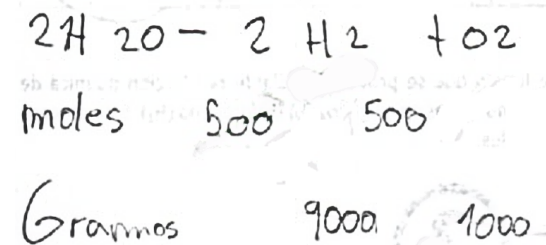 2H20- 2 H2 + 02
moles 500 500
Gramos 9000 1000